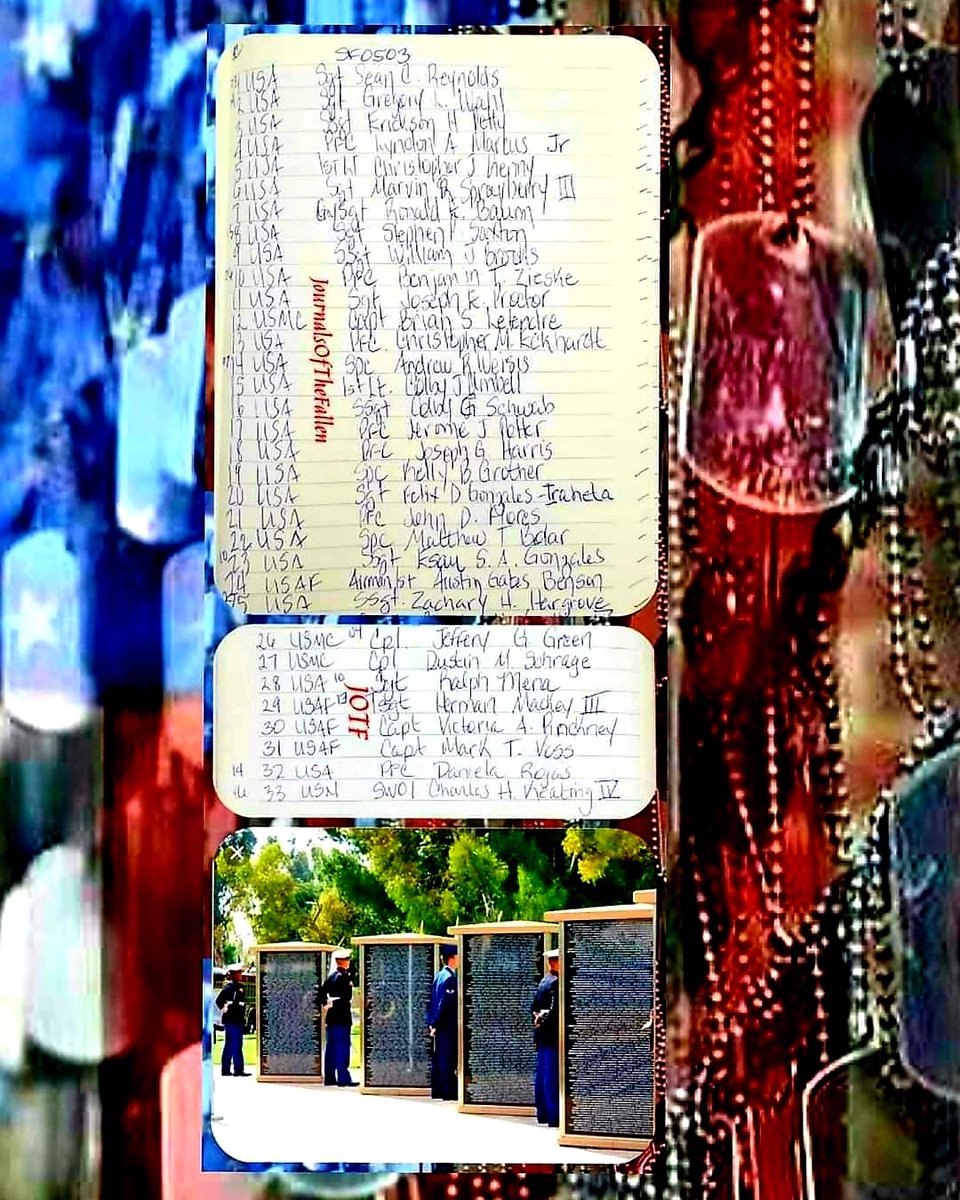 SF0503
USA Sgt Sean C. Reynolds
2 USA Sgt Gregory L. Wahl
3 USA SSgt Erickson H. Petty
4 USA PFC Lyndon A Marcus Jr
5 USA 1st Lt Christopher J Kenny
6 USA Sgt Marvin R Sprayberry III
7 USA GySgt Ronald E. Baum
8 USA Sgt Stephen Saxton
9 USA SSgt William J Brooks
10 USA PFC Benjamin T. Zieske
11 USA Sgt Joseph E. Proctor
12 USMC Capt Brian S. Letendre
13 USA PFC. Christopher M. Eckhardt
14 USA Spc Andrew R. Weiss
15 USA 1st Lt. Colby J Umbell
16 USA SSgt Coby G Schwab
17 USA PFC Jerome J Potter
18 USA PFC Joseph G Harris
19 USA Spc Kelly B Grother
20 USA Sgt Felix D Gonzales-Iraheta
21 USA PFC John D. Flores
22 USA Spc Matthew T Bolar
23 USA Sgt Esau S. A. Gonzales
24 USAF Airman 1st Austin Gates Benson
25 USA SSgt. Zachary H. Hargrove
JournalsOfTheFallen
26 USMC 04 Cpl. Jeffery G. Green
27 USMC Cpl Dustin M. Schrage
28 USA 10 Sgt Ralph Mena
29 USAF 13 TSgt Herman Mackey III
30 USAF Capt Victoria A. Pinckney
31 USAF Capt Mark T. Voss
14 32 USA PFC Daniela Rojas
16 33 USN SWO1 Charles H. Keating IV
JOTF